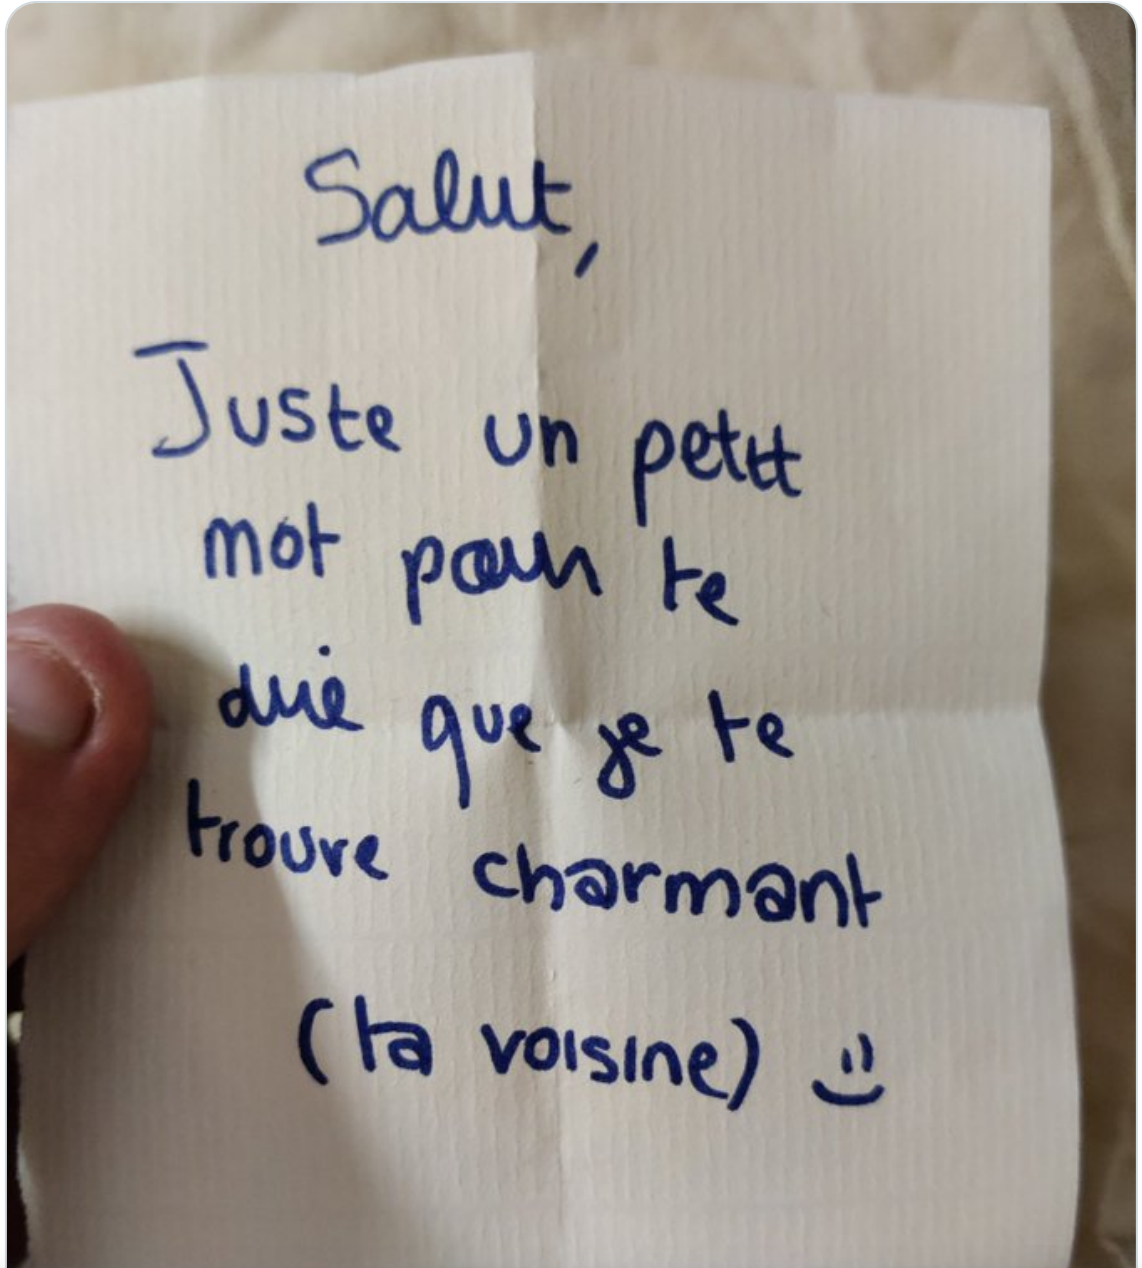 Salut,
Juste un petit
mot pour te
dire que je te
trouve charmant
(ta voisine) :)